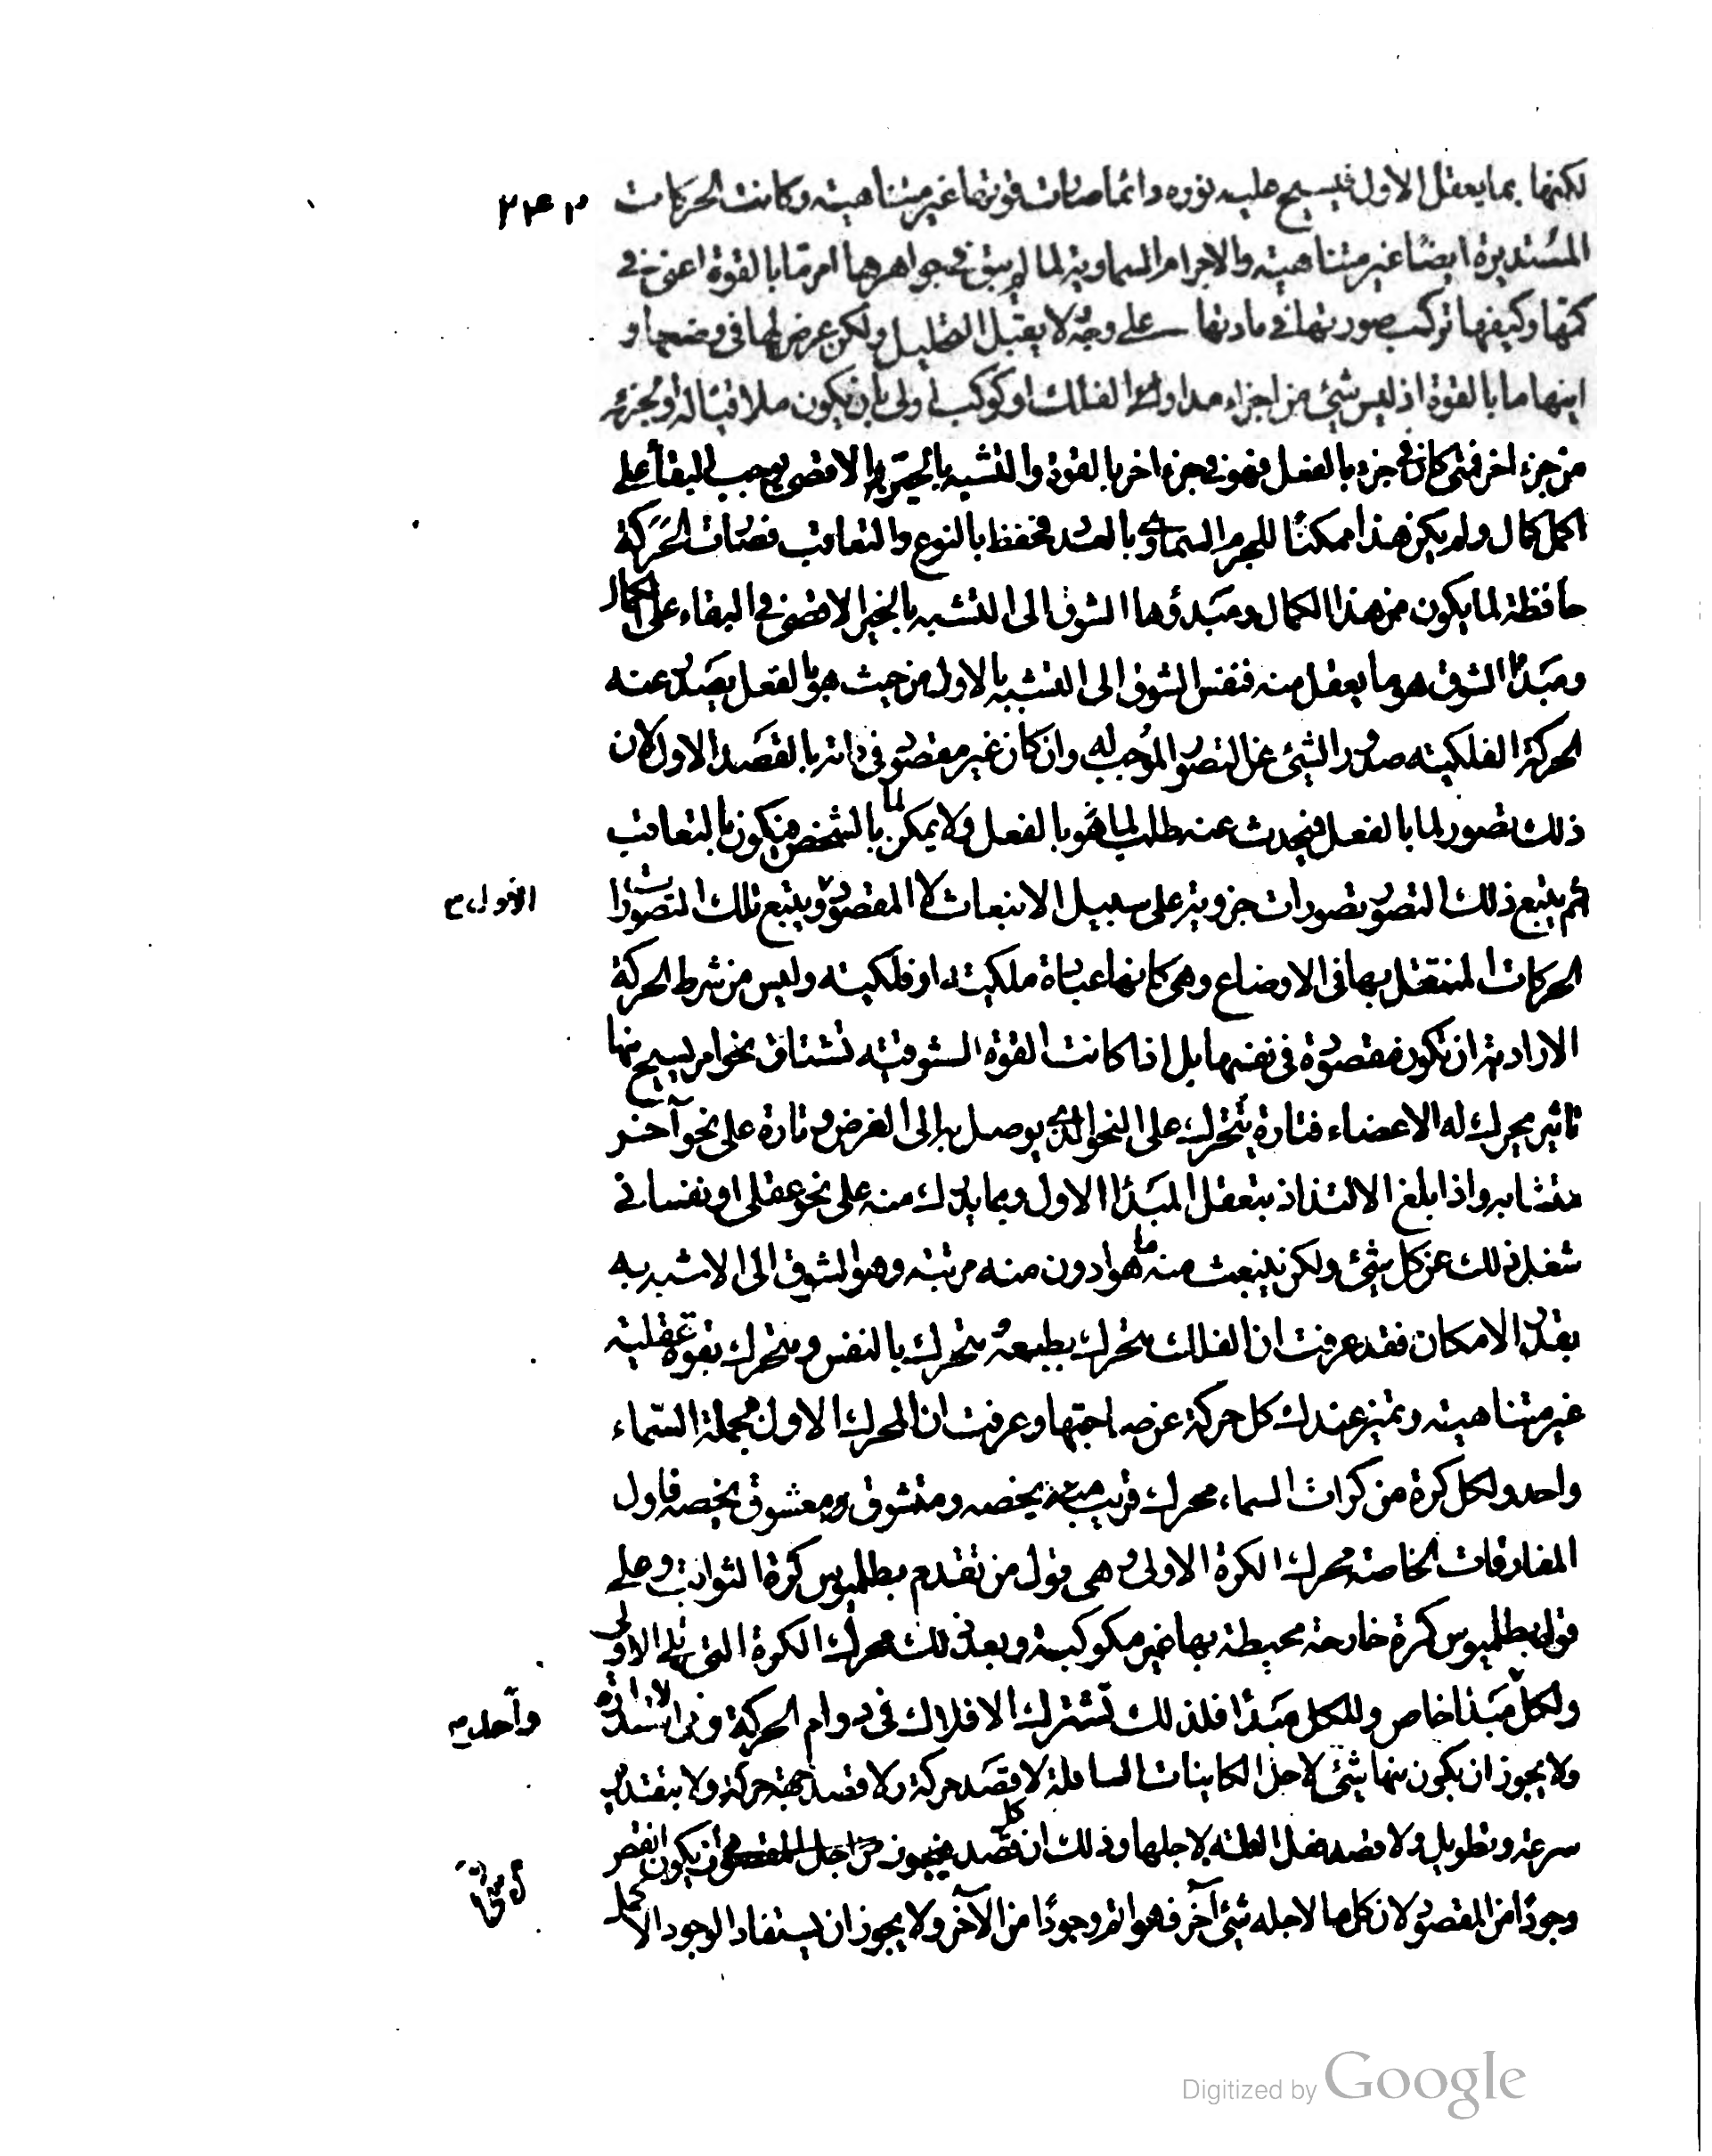 ٢٤٢
لكنها بما يعقل الاول فيسيح عليه نوره دائما صارت قوتها غير متناهية وكانت الحركات
المستديرة ايضا غير متناهية والاجرام السماوية لما لم يبق في جواهرها امر ما بالقوة اعنى في
كمها وكيفها تركب صورتها في مادتها على وجه لا يقبل التحليل ولكن عرض لها في وضعها و
اينها ما بالقوة اذ ليس شئ من اجزاء مدار الفلك او كوكب اولى بان يكون ملاقيا له او لجزئه
من جزء اخر فمتى كان في جزء بالفعل فهو في جزء اخر بالقوة والتشبه بالخير الاقصى يوجب البقاء على
اكمل كمال ولم يكن هذا ممكنا للجرم السماوى بالعدد فحفظ بالنوع والتعاقب فصارت الحركة
حافظة لما يكون من هذا الكمال ومبدؤها الشوق الى التشبه بالخير الاقصى في البقاء على الكمال
ومبدأ الشوق هو ما يعقل منه فنفس الشوق الى التشبه بالاول من حيث هو بالفعل يصدر عنه
الحركة الفلكية صدور الشئ عن التصور الموجب له وان كان غير مقصود في ذاته بالقصد الاول لان
ذلك تصور لما بالفعل فيحدث عنه طلب لما هو بالفعل ولا يمكن لما بالشخص فيكون بالتعاقب
ثم يتبع ذلك التصور تصورات جزوية على سبيل الانبعاث لا المقصود ويتبع تلك التصورات
الاول
الحركات المنتقل بها في الاوضاع وهى كانها عبادة ملكية او فلكية وليس من شرط الحركة
الارادية ان تكون مقصودة في نفسها بل اذا كانت القوة الشوقية تشتاق نحو امر يسيح منها
تاثير يحرك له الاعضاء فتارة يتحرك على النحو الذى يوصل به الى الغرض وتارة على نحو آخر
متشابه واذا بلغ الالتذاذ بتعقل المبدأ الاول وبما يدرك منه على نحو عقلى او نفسانى
شغل ذلك عن كل شئ ولكن ينبعث منه ما هو ادون منه مرتبة وهو الشوق الى الاشبه به
بقدر الامكان فقد عرفت ان الفلك متحرك بطبعه متحرك بالنفس ومتحرك بقوة عقلية
غير متناهية وتميز عندك كل حركة عن صاحبتها وعرفت ان المحرك الاول لجملة السماء
واحد ولكل كرة من كرات السماء محرك قريب يخصه ومتشوق ومعشوق يخصه فاول
المفارقات الخاصة محرك الكرة الاولى وهى قول من تقدم بطلميوس كرة الثوابت وعلى
قول بطلميوس كرة خارجة محيطة بها غير مكوكبة وبعد ذلك محرك الكرة التى تلى الاولى
ولكل مبدأ خاص وللكل مبدأ فلذلك تشترك الافلاك في دوام الحركة وفى الاستدارة
واحد
ولا يجوز ان يكون منها شئ لاجل الكاينات السافلة لا قصد حركة ولا قصد جهة حركة ولا بتقدير
سرعة وتطويل ولا قصد فعل البتة لاجلها وذلك ان كل قصد فيكون من اجل المقصود ان يكون انقص
وجودا من المقصود لان كل ما لاجله شئ آخر فهو اتم وجودا من الآخر ولا يجوز ان يستفاد الوجود الاكمل
Digitized by Google